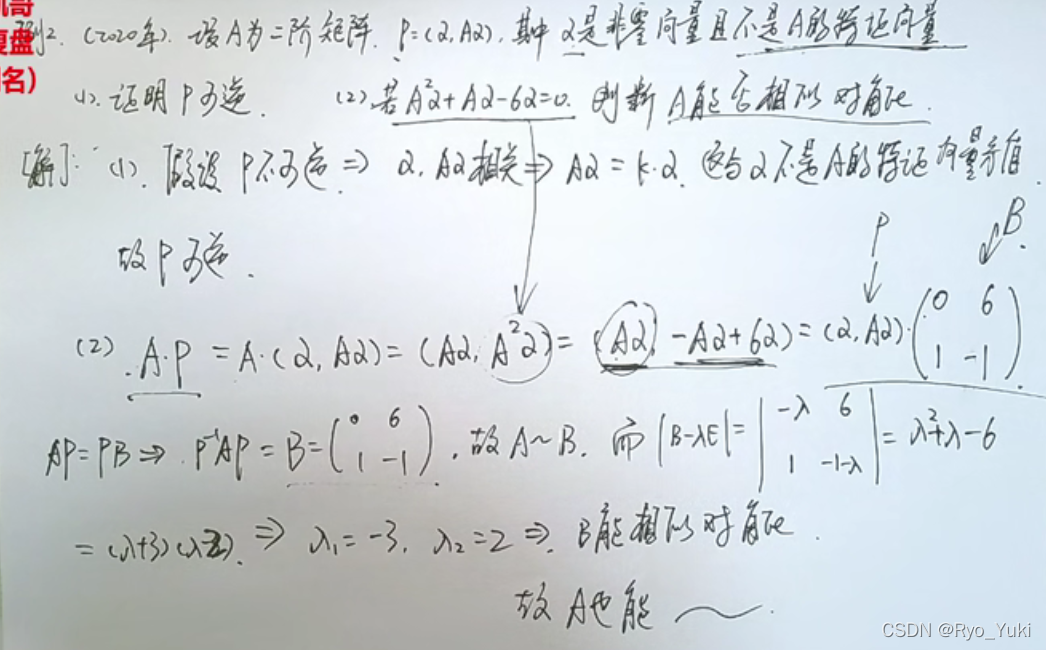 凯哥
复盘
名)
例2. (2020年). 设A为二阶矩阵. P=(α, Aα), 其中 α是非零向量且不是A的特征向量
(1). 证明 P可逆. (2). 若A²α+Aα-6α=0. 判断 A能否相似对角化.
[解]: (1). 假设 P不可逆 ⇒ α, Aα相关 ⇒ Aα = k·α. 这与α不是A的特征向量矛盾
故P可逆.
P B.
(2) A·P = A·(α, Aα) = (Aα, A²α) = (Aα, -Aα+6α) = (α, Aα)·(0 6
1 -1).
AP=PB ⇒ P⁻¹AP = B = (0 6
1 -1). 故A~B. 而 |B-λE| = |-λ 6
1 -1-λ| = λ²+λ-6
= (λ+3)(λ-2). ⇒ λ₁=-3, λ₂=2 ⇒ B能相似对角化.
故A也能 ~.
CSDN @Ryo_Yuki